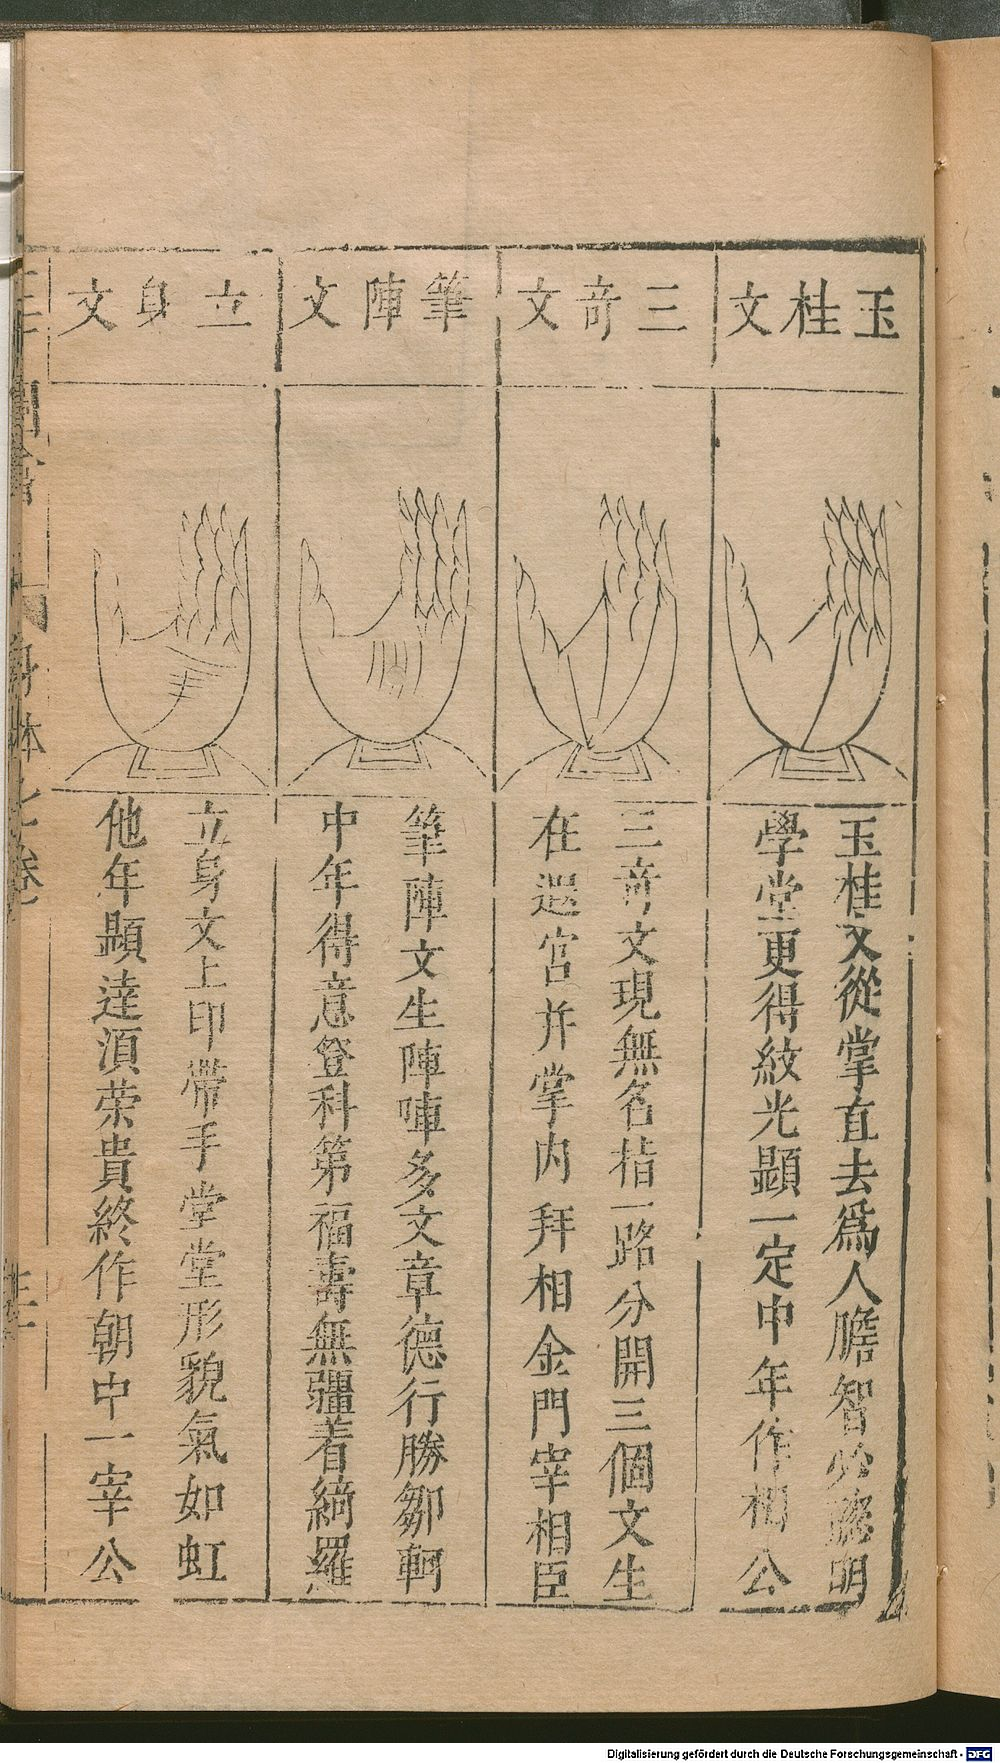 玉桂文
玉桂文從掌直去爲人膽智必聰明
學堂更得紋光顯一定中年作相公
三奇文
三奇文現無名指一路分開三個文生
在迟宮并掌內拜相金門宰相臣
筆陣文
筆陣文生陣陣多文章德行勝鄒軻
中年得意登科第福壽無疆着綺羅
立身文
立身文上印帶手堂堂形貌氣如虹
他年顯達湏荣貴終作朝中一宰公
身体七卷
Digitalisierung gefördert durch die Deutsche Forschungsgemeinschaft - DFG